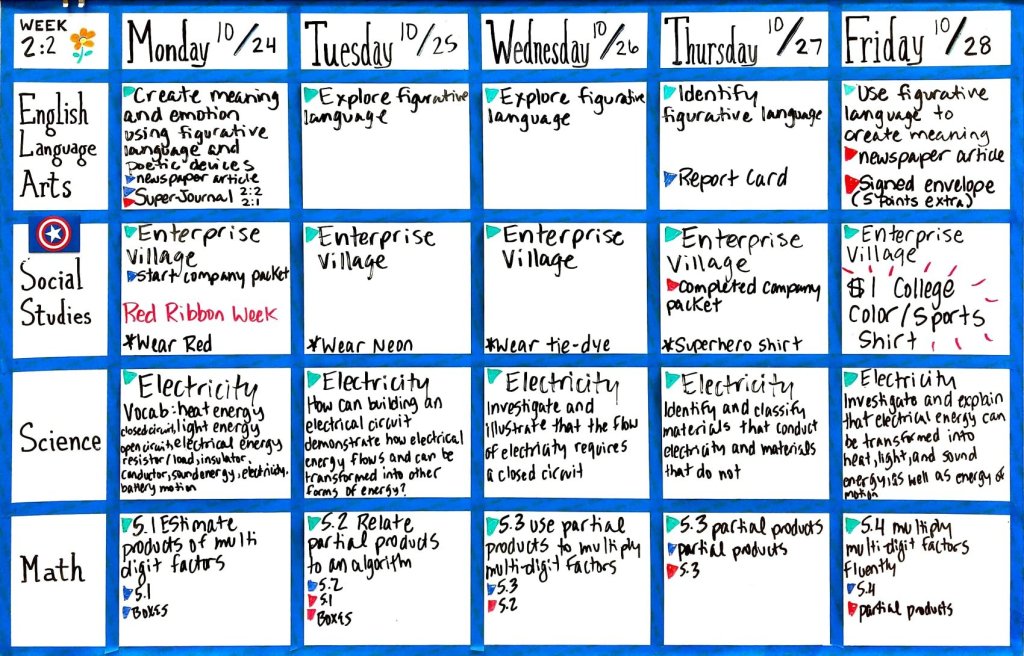 WEEK
2:2
Monday 10/24
Tuesday 10/25
Wednesday 10/26
Thursday 10/27
Friday 10/28
English
Language
Arts
Create meaning
and emotion
using figurative
language and
poetic devices
newspaper article
Super-Journal 2:2
2:1
Explore figurative
language
Explore figurative
language
Identify
figurative language
Report Card
Use figurative
language to
create meaning
newspaper article
Signed envelope
(5 points extra)
Social
Studies
Enterprise
Village
start company packet
Red Ribbon Week
*Wear Red
Enterprise
Village
*Wear Neon
Enterprise
Village
*Wear tie-dye
Enterprise
Village
completed company
packet
*Superhero shirt
Enterprise
Village
$1 College
Color/Sports
Shirt
Science
Electricity
Vocab: heat energy
closed circuit, light energy
open circuit, electrical energy
resistor/load, insulator,
conductor, sound energy, electricity,
battery motion
Electricity
How can building an
electrical circuit
demonstrate how electrical
energy flows and can be
transformed into other
forms of energy?
Electricity
Investigate and
illustrate that the flow
of electricity requires
a closed circuit
Electricity
Identify and classify
materials that conduct
electricity and materials
that do not
Electricity
Investigate and explain
that electrical energy can
be transformed into
heat, light, and sound
energy, as well as energy of
motion
Math
5.1 Estimate
products of multi
digit factors
5.1
Boxes
5.2 Relate
partial products
to an algorithm
5.2
5.1
Boxes
5.3 use partial
products to multiply
multi-digit factors
5.3
5.2
5.3 partial products
partial products
5.3
5.4 multiply
multi-digit factors
fluently
5.4
partial products